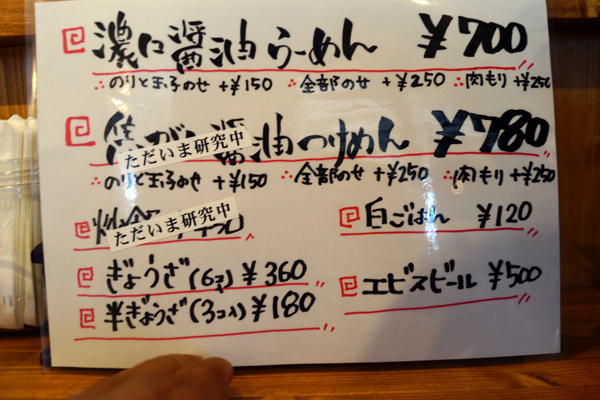 濃口醤油らーめん ¥700
のりと玉子のせ +¥150 全部のせ +¥250 肉もり +¥250
焦がし醤油つけめん ¥780
ただいま研究中
のりと玉子のせ +¥150 全部のせ +¥250 肉もり +¥250
ただいま研究中
白ごはん ¥120
ぎょうざ(6コ) ¥360
エビスビール ¥500
半ぎょうざ(3コ入) ¥180